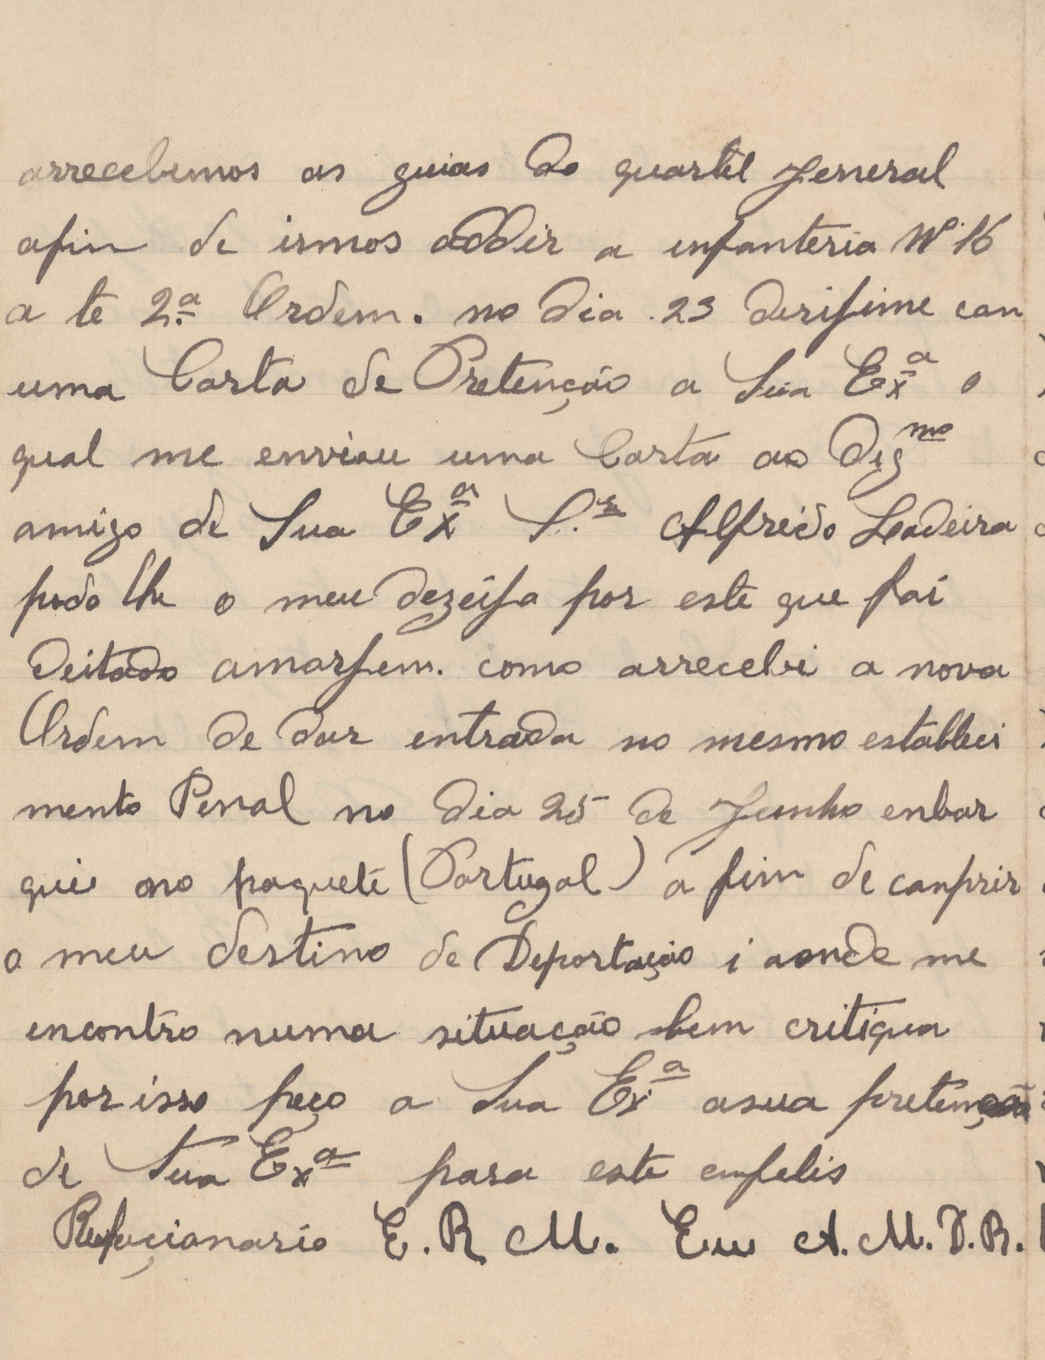 arrecebemos as guias do quartel Jeneral
afin de irmos addir a infanteria Nº 16
a te 2.ª Ordem. no dia 23 derifime con
uma Carta de Pretenção a Sua Exª o
qual me enviau uma Carta ao Digmo
amigo de Sua Exª S.r Alfredo Ladeira
podo lhe o meu dezeifa por este que fai
deitado amarfem. como arrecebi a nova
Ordem de dar entrada no mesmo estableci
mento Penal no dia 25 de Junho enbar
quei no paquete (Portugal) a fim de canprir
o meu destino de Deportação i aonde me
encontro numa situacção bem critiqua
por isso peço a Sua Exª asua pretenção
de Sua Exª para este enfelis
Rufuçionario E. R M. Eu A. M. D. R.